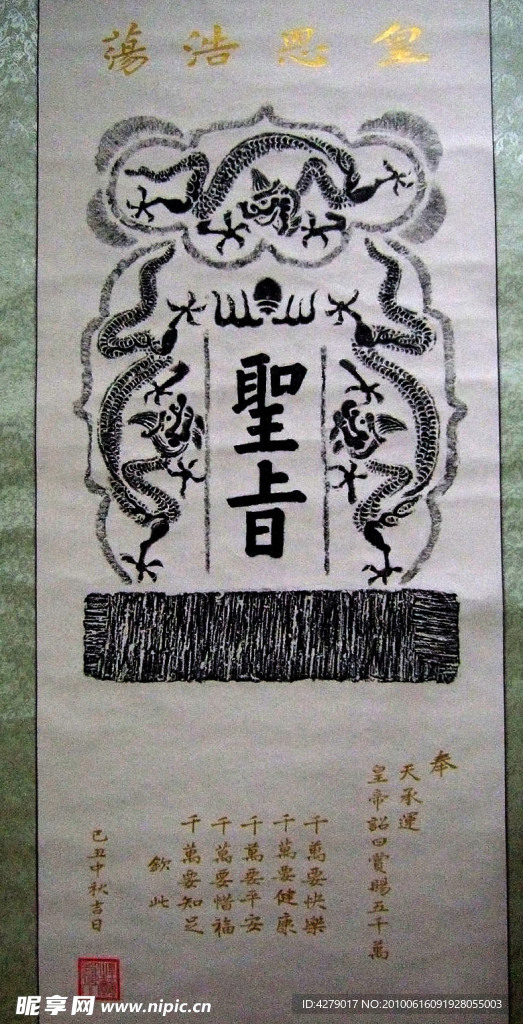 皇恩浩蕩
聖旨
奉
天承運
皇帝詔曰賞賜五千萬
千萬要快樂
千萬要健康
千萬要平安
千萬要惜福
千萬要知足
欽此
己丑中秋吉日
昵享网 www.nipic.cn
ID:4279017 NO:20100616091928055003